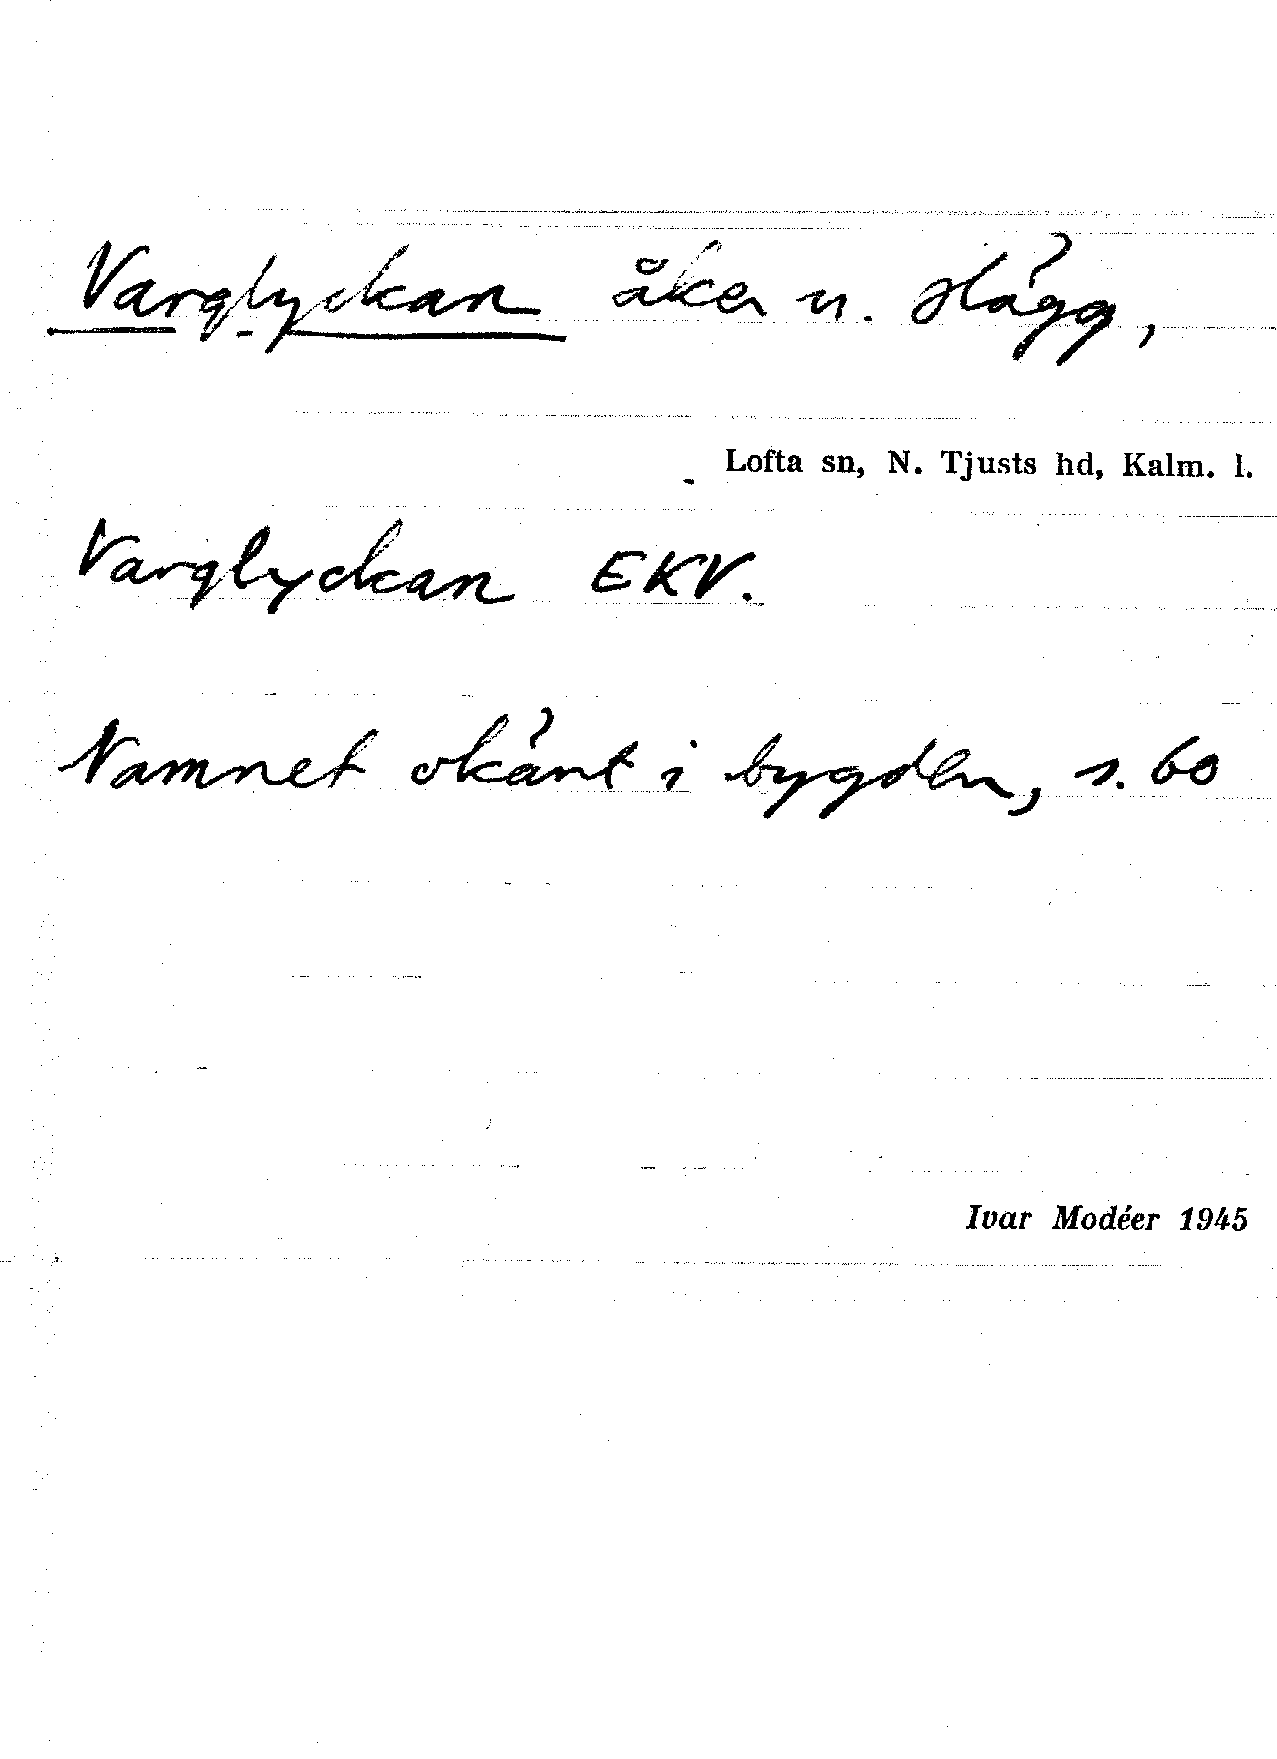 Varglyckan åker u. Hägg,
Lofta sn, N. Tjusts hd, Kalm. l.
Varglyckan EKV.
Namnet okänt i bygden, s. 60
Ivar Modéer 1945